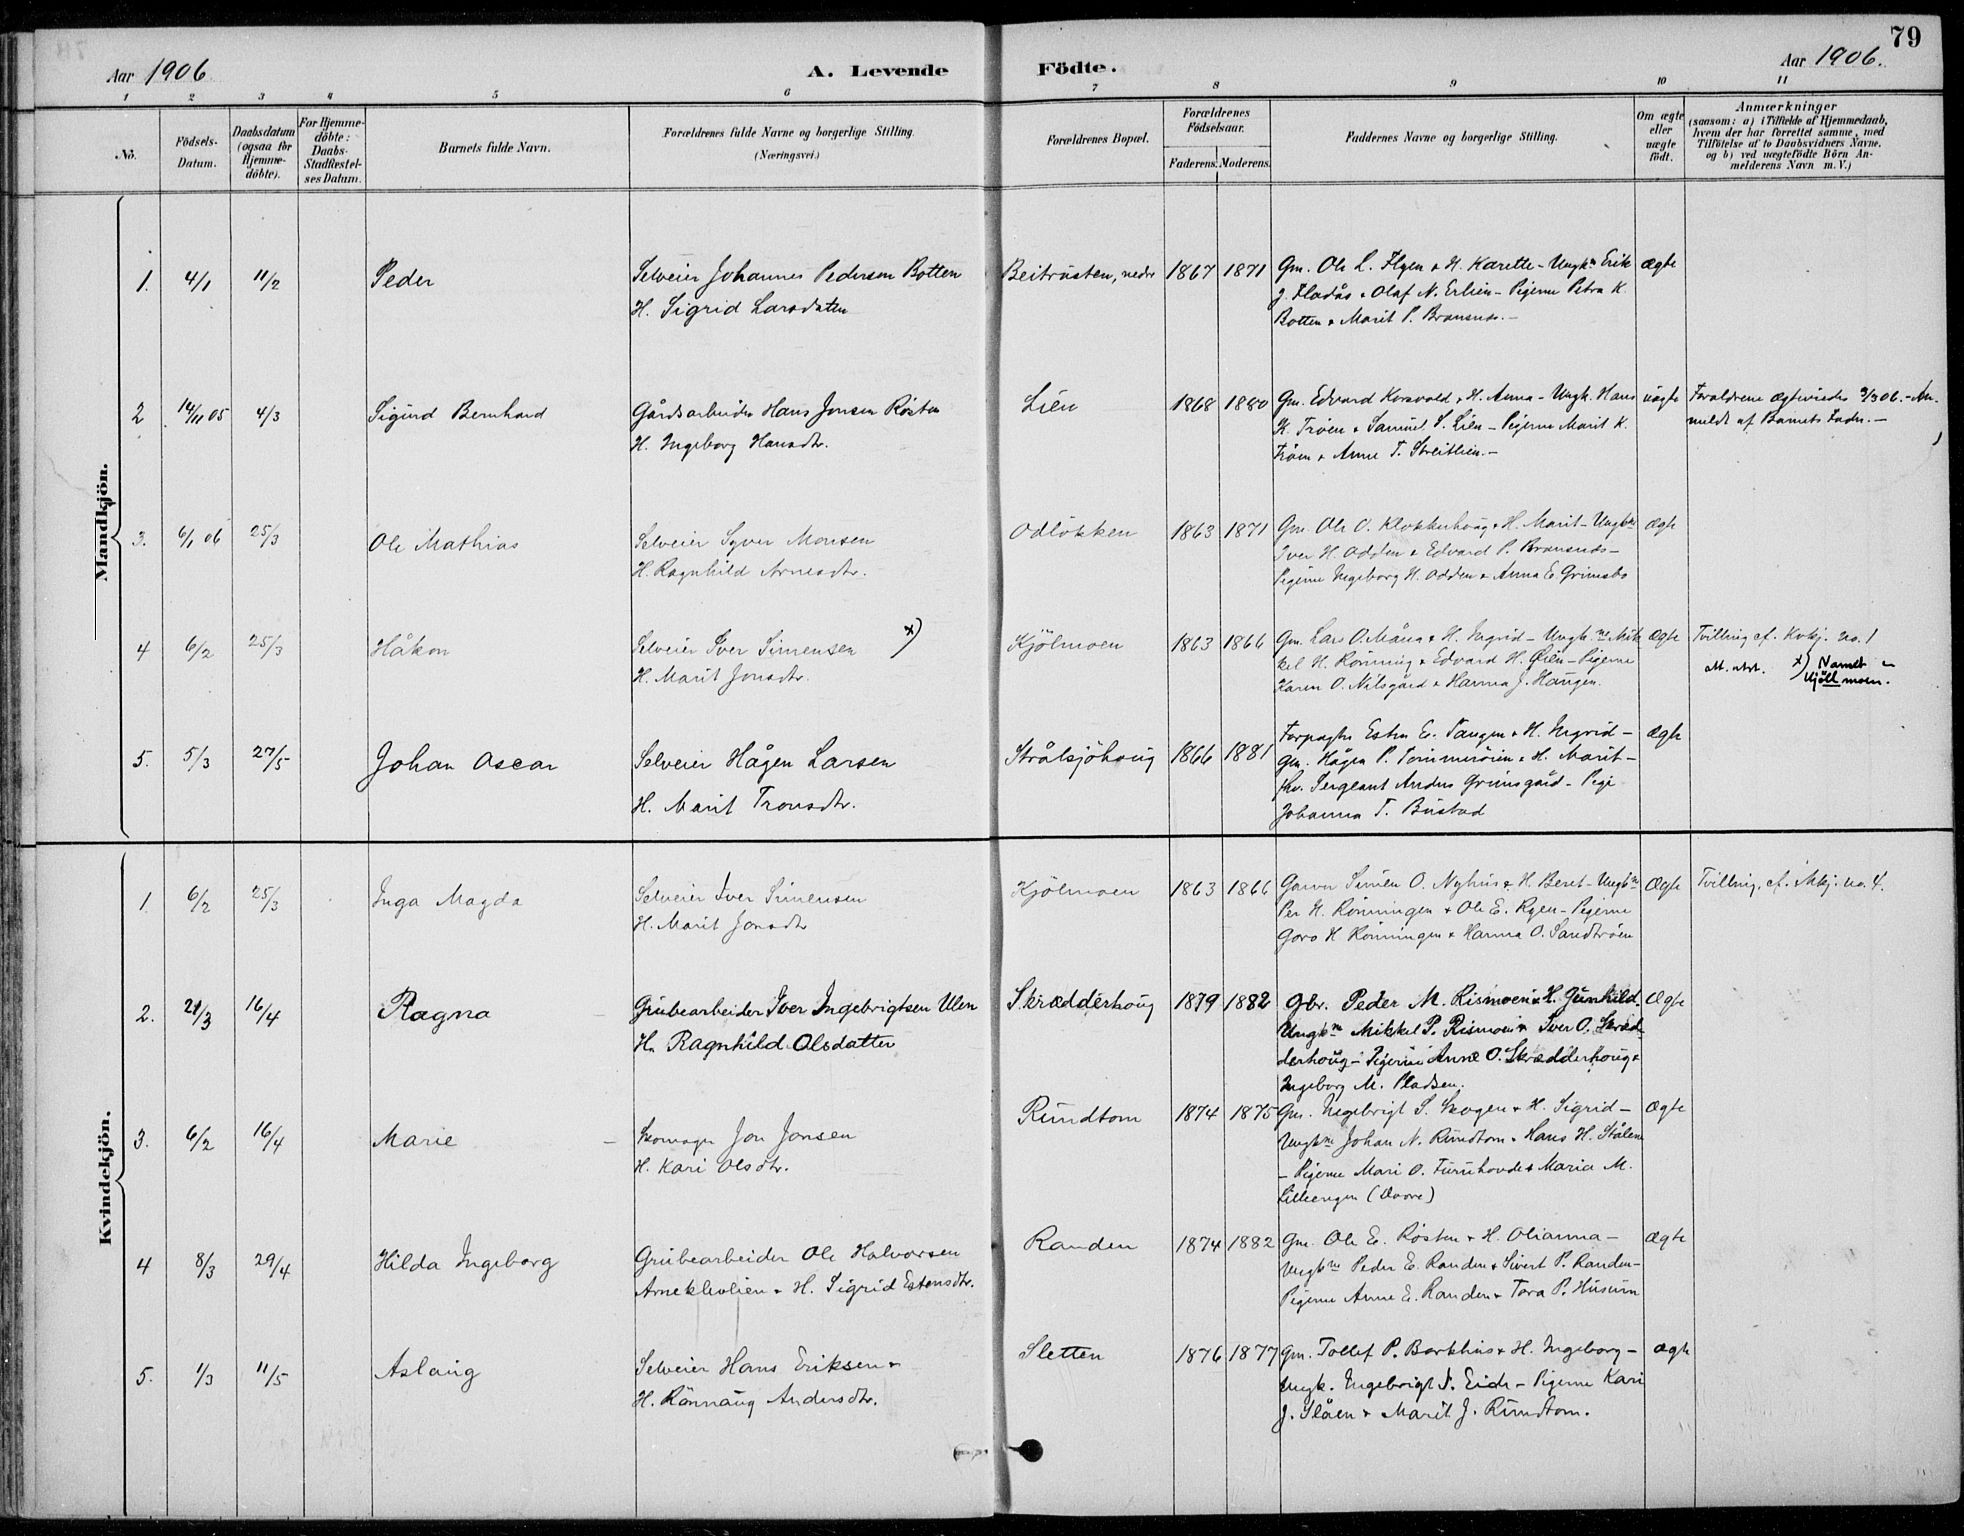 79
Aar 1906
A. Levende
Födte.
Aar 1906.
1 2 3 4 5 6 7 8 9 10 11
No.
Födsels-
Datum.
Daabsdatum
(ogsaa for
Hjemme-
döbte).
For Hjemme-
döbte:
Daabs-
Stadfæstel-
ses Datum.
Barnets fulde Navn.
Forældrenes fulde Navne og borgerlige Stilling.
(Næringsvei.)
Forældrenes Bopæl.
Forældrenes
Födselsaar.
Faderens. Moderens.
Faddernes Navne og borgerlige Stilling.
Om ægte
eller
uægte
født.
Anmærkninger
(saasom: a) i Tilfælde af Hjemmedaab,
hvem der har forrettet samme, med
Tilföielse af to Daabsvidners Navne,
og b) ved uægtefödte Börn An-
melderens Navn m. V.)
Mandkjön.
1. 4/1 11/2 Peder
Selveier Johannes Pedersen Botten
H. Sigrid Larsdatter
Beitrusten, nedre 1867 1871
Gm. Ole L. Flyen & H. Karette - Ungkn Erik
J. Fladås & Olaf N. Erlien - Pigerne Petra K.
Botten & Marit P. Bransnes.-
Ægte
2 14/11 05 4/3 Sigurd Bernhard
Gårdsarbeider Hans Jonsen Røsten
H. Ingeborg Hansdtr.
Lien 1868 1880
Gm. Edvard Korsvold & H. Anna - Ungk. Hans
K. Troen & Samuel S. Lien - Pigerne Marit K.
Tröen & Anne T. Streitlien.-
uægte
Forældrene ægteviedes 9/3 06. - An-
meldt af Barnets Fader.-
3. 6/1 06 25/3 Ole Mathias
Selveier Syver Monsen
H. Ragnhild Arnesdtr.
Odløkken 1863 1871
Gm. Ole O. Klokkerhoug & H. Marit - Ungkne
Iver H. Odden & Edvard P. Bransnes -
Pigerne Ingeborg H. Odden & Anna E. Grimsbo
Ægte
4 6/2 25/3 Håkon
Selveier Iver Simensen x)
H. Marit Jonsdtr.
Kjölmoen 1863 1866
Gm. Lars O. Måna & H. Ingrid - Ungk.ne Mik
kel H. Rönning & Edvard H. Öien - Pigerne
Karen O. Nilsgård & Hanna J. Haugen.
Ægte
Tvilling cf. Kvkj. no. 1
x) Navnet
Kjöllmoen.
5. 5/3 27/5 Johan Oscar
Selveier Hågen Larsen
H. Marit Tronsdtr.
Strålsjöhoug 1866 1881
Forpagter Esten E. Tangen & H. Ingrid -
Gm. Hågen P. Tömmeröien & H. Marit -
fhv. Sergeant Anders Grimsgård - Pige
Johanna T. Bustad
Ægte
Kvindekjön.
1 6/2 25/3 Inga Magda
Selveier Iver Simensen
H. Marit Jonsdtr
Kjölmoen 1863 1866
Garver Simen O. Nyhus & H. Beret - Ungkne
Per H. Rönningen & Ole E. Ryen - Pigerne
Goro H Rönningen & Hanna O. Sandtröen
Ægte
Tvilling, cf. Mkj. no. 4.
2. 21/3 16/4 Ragna
Grubearbeider Iver Ingebrigtsen Ulen
H. Ragnhild Olsdatter
Skrædderhoug 1879 1882
Gbr. Peder M. Rismoen & H. Gunhild.
Ungkne Mikkel P. Rismoen & Iver O. Skræd-
derhoug - Pigerne Anne O. Skrædderhoug &
Ingeborg M. Pladsen.
Ægte
3. 6/2 16/4 Marie
Skomager Jon Jonsen
H. Kari Olsdtr.
Rundtom 1874 1875
Gm. Ingebrigt S. Skogen & H. Sigrid -
Ungkne Johan N. Rundtom & Hans H. Stålen
- Pigerne Mari O. Furuhovde & Maria M.
Lilleengen (Dovre)
Ægte
4 8/3 29/4 Hilda Ingeborg
Grubearbeider Ole Halvorsen
Arnekleivlien & H. Sigrid Estensdtr.
Randen 1874 1882
Gm. Ole E. Rösten & H. Olianna -
Ungkne Peder E. Randen & Sivert P. Randen -
Pigerne Anne E. Randen & Tora P. Husum
Ægte
5. 1/3 11/5 Aslaug
Selveier Hans Eriksen &
H. Rönnaug Andersdtr.
Sletten 1876 1877
Gm. Tollef P. Barkhus & H. Ingeborg -
Ungk. Ingebrigt J. Eide - Pigerne Kari
J. Slåen & Marit J. Rundtom.
Ægte